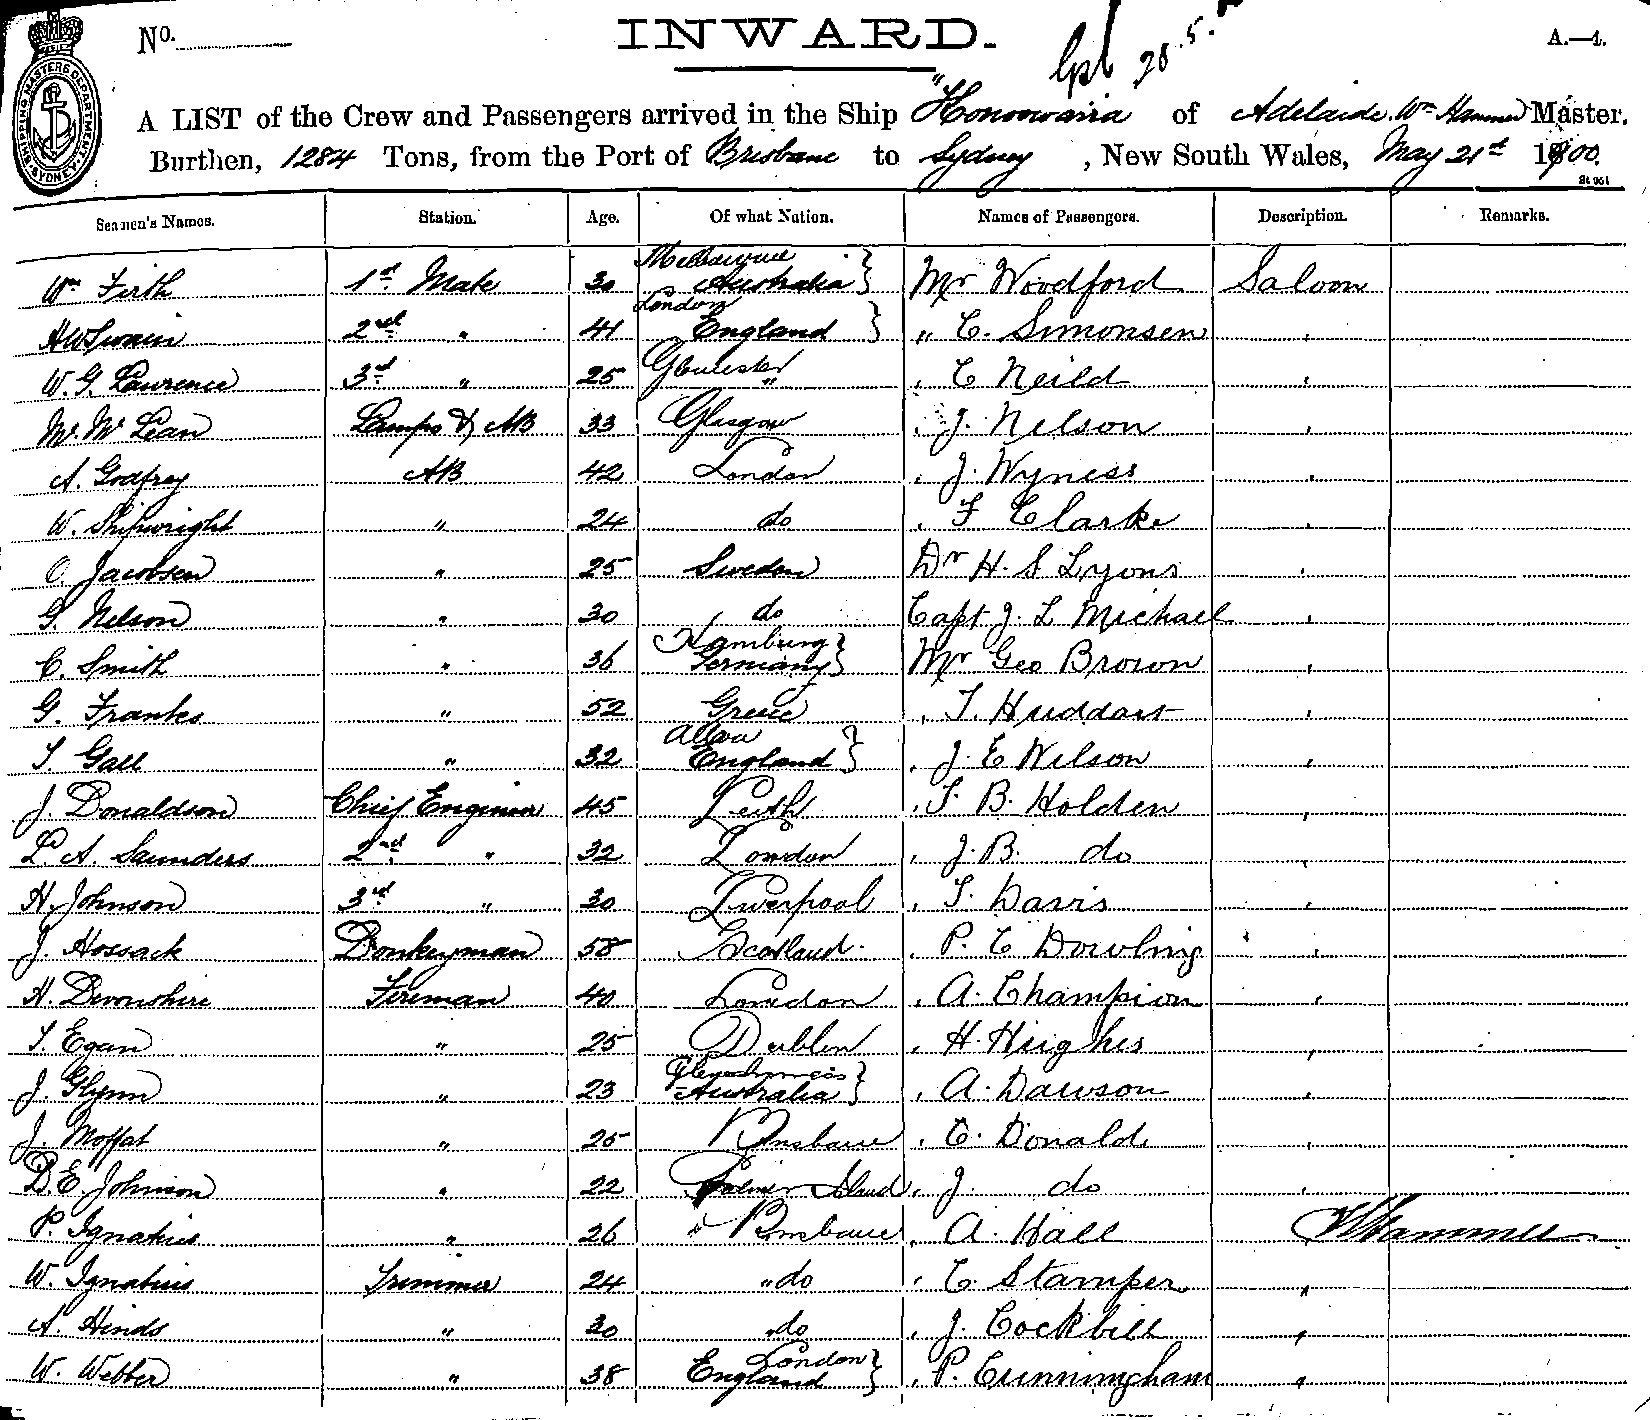 No.
INWARD.
A.—4.
28.5.
SHIPPING MASTERS DEPARTMENT SYDNEY
A LIST of the Crew and Passengers arrived in the Ship "Konoowarra of Adelaide. Wm Hammer Master.
Burthen, 1284 Tons, from the Port of Brisbane to Sydney, New South Wales, May 21st 1900.
Seamen's Names. Station. Age. Of what Nation. Names of Passengers. Description. Remarks.
Wm Firth 1st Mate 30 Melbourne Australia } Mr Woodford Saloon
H W Swain 2nd " 41 London England } " C. Simonsen "
W. G. Lawrence 3rd " 25 Gloucester " " C Neild "
M. McLean Lamps & AB 33 Glasgow " J. Nelson "
A. Godfrey AB 42 London " J. Wyness "
W. Shipwright " 24 do " F Clarke "
O. Jacobsen " 25 Sweden Dr H. S Lyons "
G. Nelson " 30 do Capt J. L Michael "
C. Smith " 36 Hamburg Germany } Mr Geo Brown "
G. Franks " 52 Greece " T. Huddart "
T. Gall " 32 Alloa England } " J. E Wilson "
J. Donaldson Chief Engineer 45 Leith " T. B. Holden "
L. A. Saunders 2nd " 32 London " J. B. do "
H. Johnson 3rd " 30 Liverpool " T. Davis "
J. Hossack Donkeyman 58 Scotland. " P. C Dowling "
H. Devonshire Fireman 40 London " A. Champion "
T. Egan " 25 Dublin " H. Hughes "
J. Glynn " 23 Australia } " A. Dawson "
J. Moffat " 25 Brisbane " C. Donald "
D. E. Johnson " 22 Island " J. do "
P. Ignatius " 26 Brisbane " A. Hall " W Hammer
W. Ignatius Trimmer 24 " do " C. Stamper "
A. Hinds " 30 " do " J. Cockbill "
W. Webber " 38 London England } " P. Cunningham "